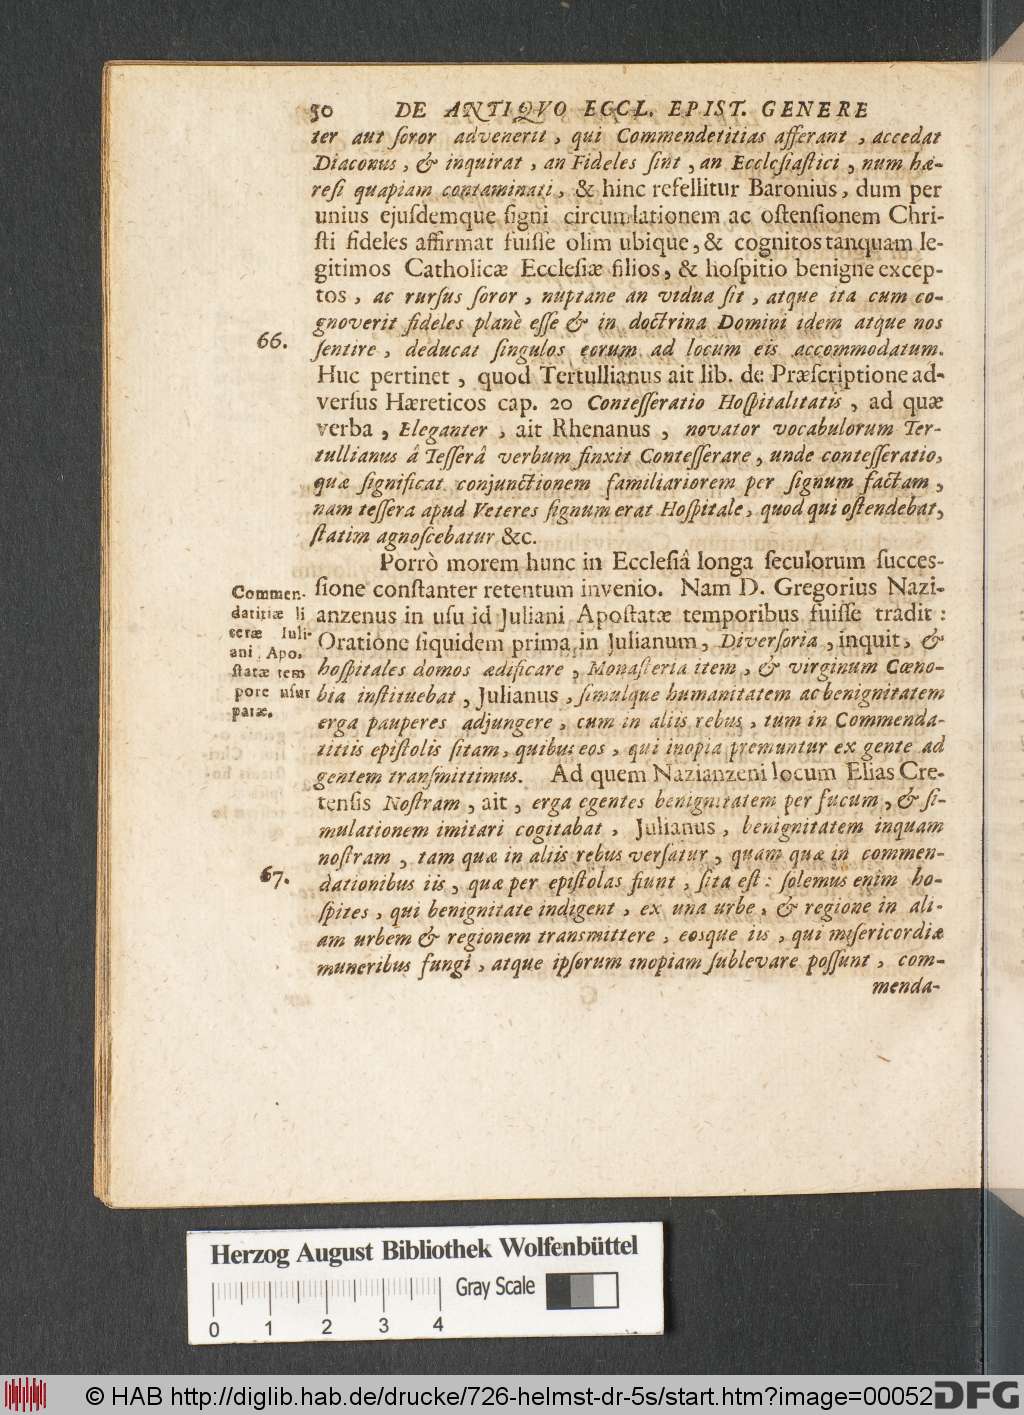 50 DE ANTIQVO ECCL. EPIST. GENERE
ter aut ſoror advenerit, qui Commendetitias afferant, accedat
Diaconus, & inquirat, an Fideles ſint, an Eccleſiaſtici, num hæ-
reſi quapiam contaminati, & hinc refellitur Baronius, dum per
unius ejuſdemque ſigni circumlationem ac oſtenſionem Chri-
ſti fideles affirmat fuiſſe olim ubique, & cognitos tanquam le-
gitimos Catholicæ Eccleſiæ filios, & hoſpitio benigne excep-
tos, ac rurſus ſoror, nuptane an vidua ſit, atque ita cum co-
gnoverit fideles planè eſſe & in doctrina Domini idem atque nos
66.
ſentire, deducat ſingulos eorum ad locum eis accommodatum.
Huc pertinet, quod Tertullianus ait lib. de Præſcriptione ad-
verſus Hæreticos cap. 20 Conteſſeratio Hoſpitalitatis, ad quæ
verba, Eleganter, ait Rhenanus, novator vocabulorum Ter-
tullianus â Teſſerâ verbum finxit Conteſſerare, unde conteſſeratio,
quæ ſignificat conjunctionem familiariorem per ſignum factam,
nam teſſera apud Veteres ſignum erat Hoſpitale, quod qui oſtendebat,
ſtatim agnoſcebatur &c.
Porrò morem hunc in Eccleſiâ longa ſeculorum ſucces-
ſione conſtanter retentum invenio. Nam D. Gregorius Nazi-
anzenus in uſu id Juliani Apoſtatæ temporibus fuiſſe tradit:
Oratione ſiquidem prima in Julianum, Diverſoria, inquit, &
hoſpitales domos ædificare, Monaſteria item, & virginum Cœno-
bia inſtituebat, Julianus, ſimulque humanitatem ac benignitatem
erga pauperes adjungere, cum in aliis rebus, tum in Commenda-
titiis epiſtolis ſitam, quibus eos, qui inopia premuntur ex gente ad
gentem tranſmittimus. Ad quem Nazianzeni locum Elias Cre-
tenſis Noſtram, ait, erga egentes benignitatem per fucum, & ſi-
mulationem imitari cogitabat, Julianus, benignitatem inquam
noſtram, tam quæ in aliis rebus verſatur, quam quæ in commen-
67.
dationibus iis, quæ per epiſtolas fiunt, ſita eſt: ſolemus enim ho-
ſpites, qui benignitate indigent, ex una urbe, & regione in ali-
am urbem & regionem transmittere, eosque iis, qui miſericordiæ
muneribus fungi, atque ipſorum inopiam ſublevare poſſunt, com-
menda-
Commen-
datitiæ li
teræ Iuli-
ani Apo-
ſtatæ tem
pore uſur
patæ.
Herzog August Bibliothek Wolfenbüttel
Gray Scale
0 1 2 3 4
© HAB http://diglib.hab.de/drucke/726-helmst-dr-5s/start.htm?image=00052
DFG